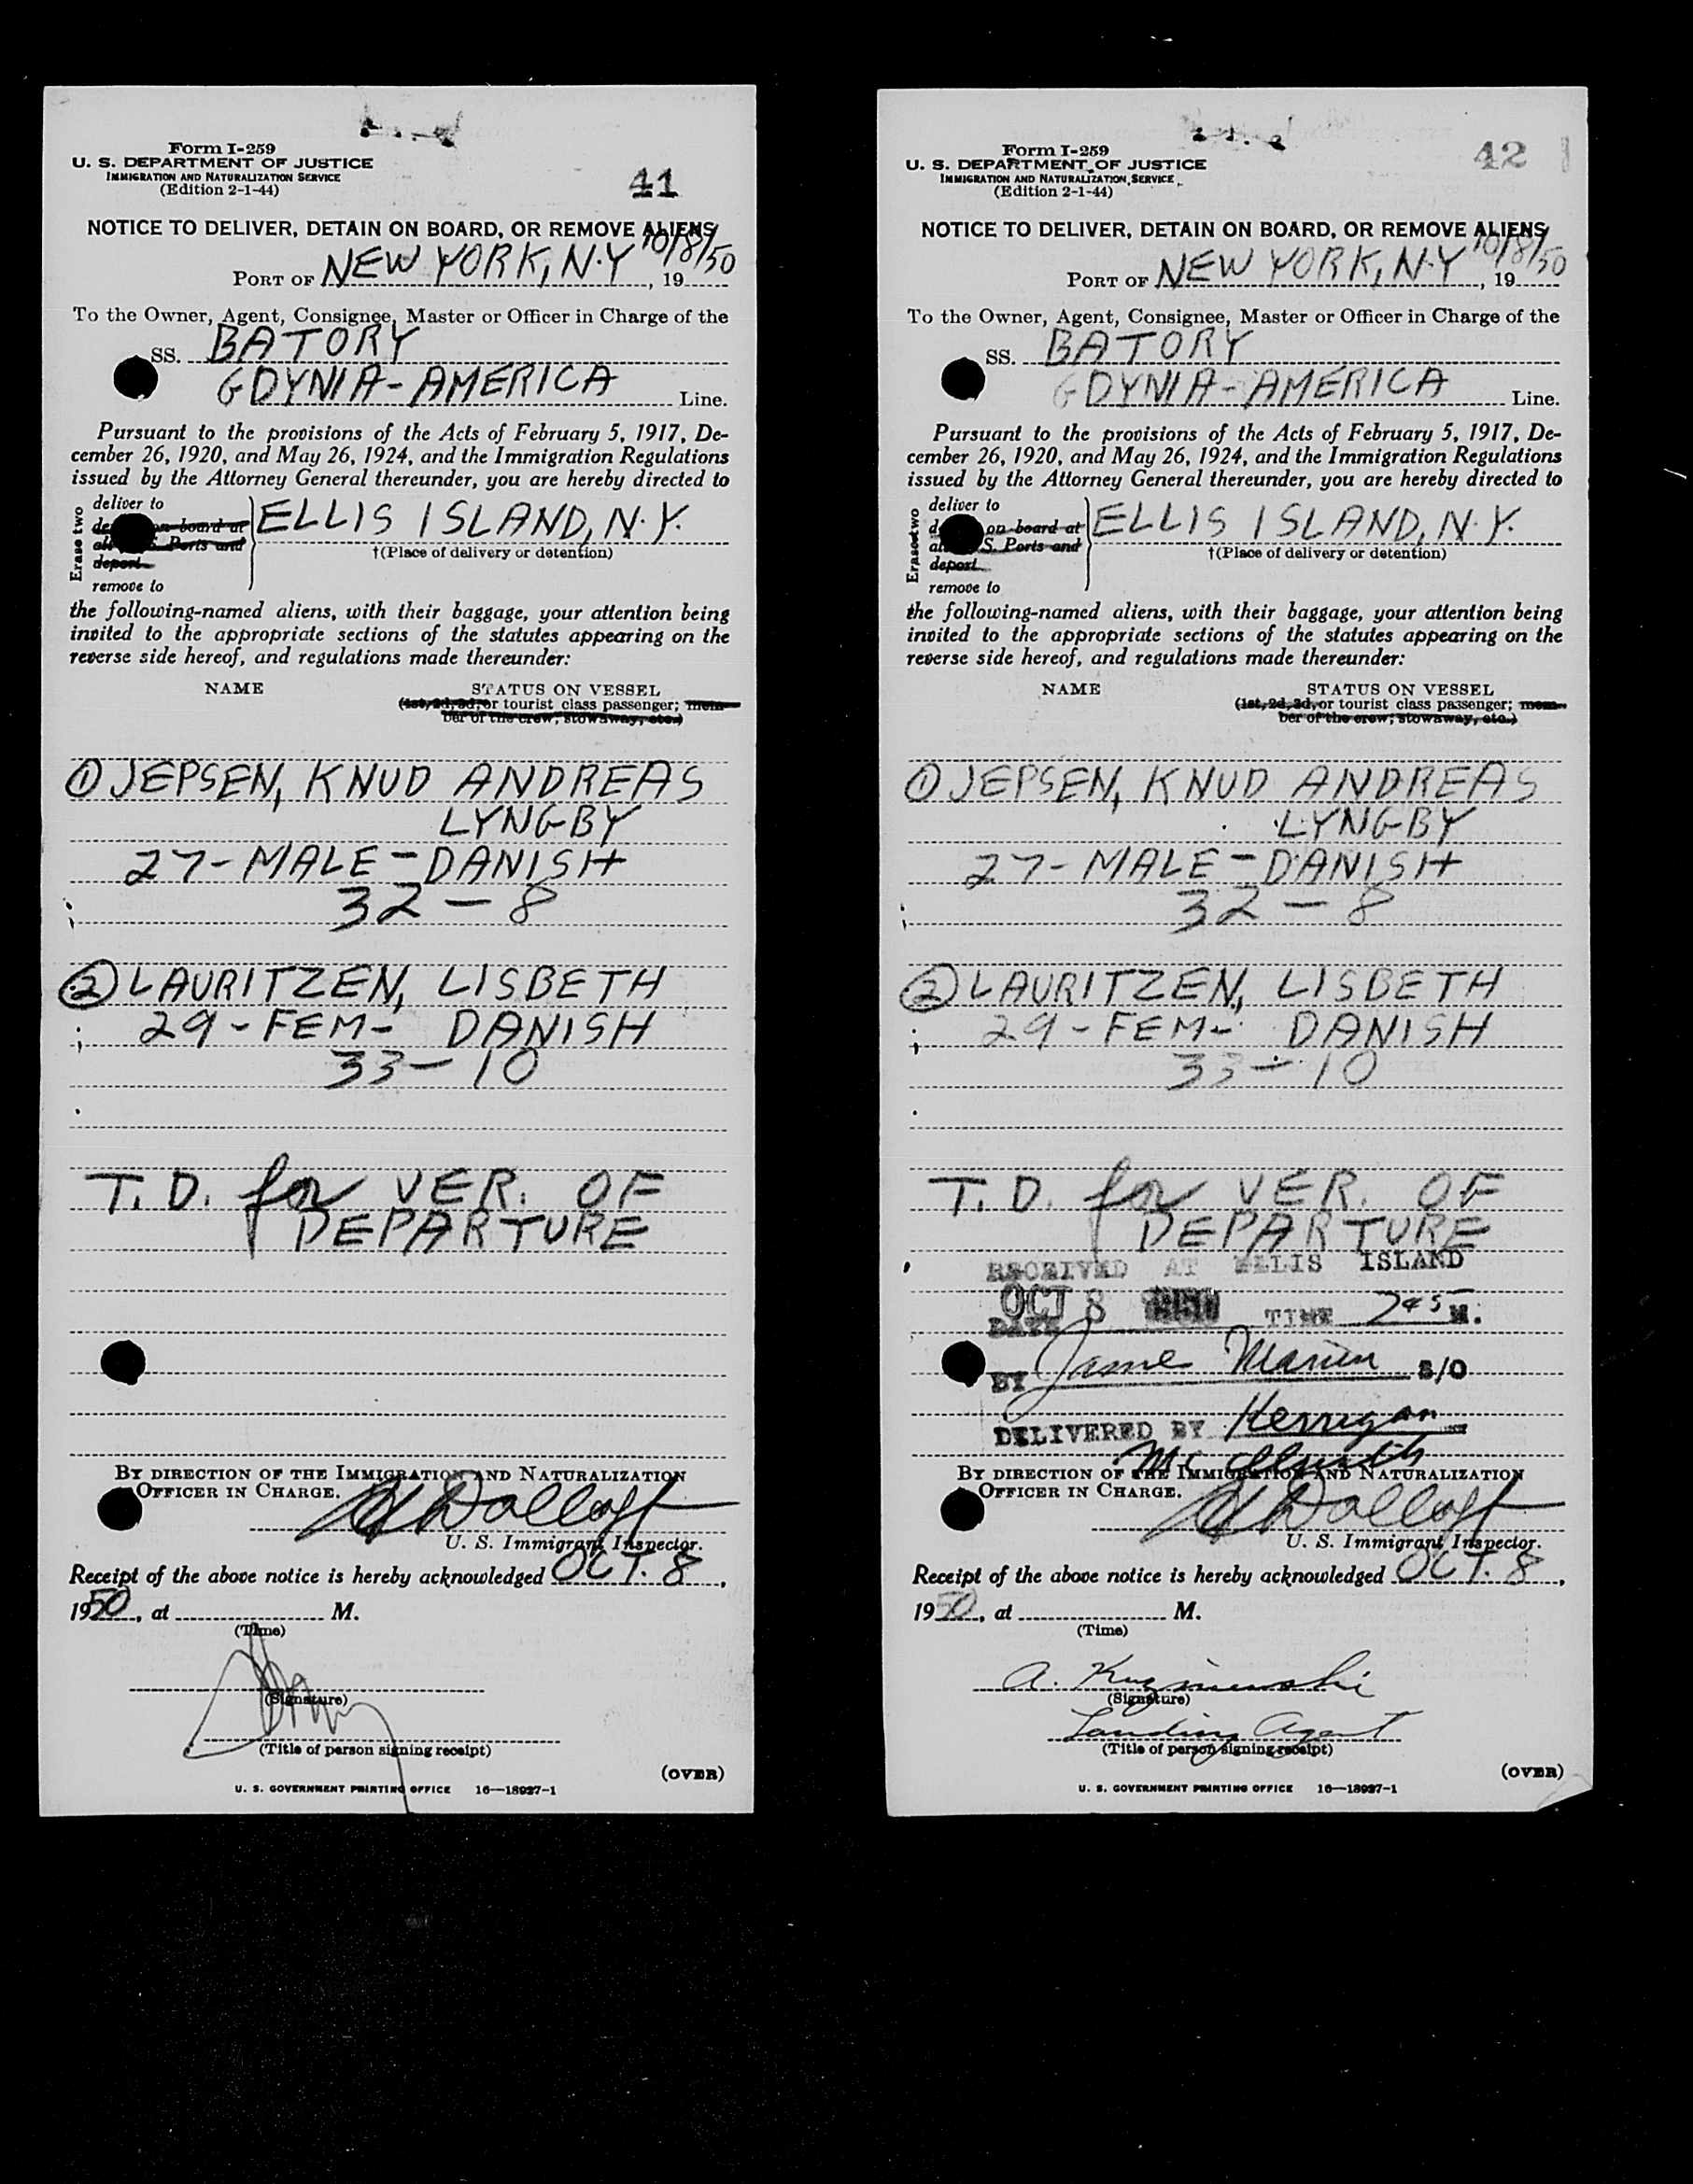 Form I-259
U. S. DEPARTMENT OF JUSTICE
IMMIGRATION AND NATURALIZATION SERVICE
(Edition 2-1-44)
41
NOTICE TO DELIVER, DETAIN ON BOARD, OR REMOVE ALIENS
10/8/50
PORT OF NEW YORK, N.Y , 19
To the Owner, Agent, Consignee, Master or Officer in Charge of the
SS. BATORY
GDYNIA-AMERICA Line.
Pursuant to the provisions of the Acts of February 5, 1917, De-
cember 26, 1920, and May 26, 1924, and the Immigration Regulations
issued by the Attorney General thereunder, you are hereby directed to
Erase two
deliver to
on board at
S. Ports and
deport
remove to
ELLIS ISLAND, N.Y.
†(Place of delivery or detention)
the following-named aliens, with their baggage, your attention being
invited to the appropriate sections of the statutes appearing on the
reverse side hereof, and regulations made thereunder:
NAME STATUS ON VESSEL
(1st, 2d, 3d, or tourist class passenger; mem-
ber of the crew; stowaway, etc.)
① JEPSEN, KNUD ANDREAS
LYNGBY
27- MALE - DANISH
32 - 8
② LAURITZEN, LISBETH
29 - FEM - DANISH
33 - 10
T. D. for VER. OF
DEPARTURE
BY DIRECTION OF THE IMMIGRATION AND NATURALIZATION
OFFICER IN CHARGE.
U. S. Immigrant Inspector.
Receipt of the above notice is hereby acknowledged OCT. 8,
1950, at M.
(Time)
(Signature)
(Title of person signing receipt)
(OVER)
U. S. GOVERNMENT PRINTING OFFICE 16—18927-1
Form I-259
U. S. DEPARTMENT OF JUSTICE
IMMIGRATION AND NATURALIZATION SERVICE
(Edition 2-1-44)
42
NOTICE TO DELIVER, DETAIN ON BOARD, OR REMOVE ALIENS
10/8/50
PORT OF NEW YORK, N.Y , 19
To the Owner, Agent, Consignee, Master or Officer in Charge of the
SS. BATORY
GDYNIA-AMERICA Line.
Pursuant to the provisions of the Acts of February 5, 1917, De-
cember 26, 1920, and May 26, 1924, and the Immigration Regulations
issued by the Attorney General thereunder, you are hereby directed to
Erase two
deliver to
on board at
S. Ports and
deport
remove to
ELLIS ISLAND, N.Y.
†(Place of delivery or detention)
the following-named aliens, with their baggage, your attention being
invited to the appropriate sections of the statutes appearing on the
reverse side hereof, and regulations made thereunder:
NAME STATUS ON VESSEL
(1st, 2d, 3d, or tourist class passenger; mem-
ber of the crew; stowaway, etc.)
① JEPSEN, KNUD ANDREAS
LYNGBY
27- MALE - DANISH
32 - 8
② LAURITZEN, LISBETH
29 - FEM - DANISH
33 - 10
T. D. for VER. OF
DEPARTURE
RECEIVED AT ELLIS ISLAND
OCT 8 1950
DATE TIME 745 M.
BY S/O
DELIVERED BY Kerrigan
BY DIRECTION OF THE IMMIGRATION AND NATURALIZATION
OFFICER IN CHARGE.
U. S. Immigrant Inspector.
Receipt of the above notice is hereby acknowledged OCT. 8,
1950, at M.
(Time)
(Signature)
Landing Agent
(Title of person signing receipt)
(OVER)
U. S. GOVERNMENT PRINTING OFFICE 16—18927-1